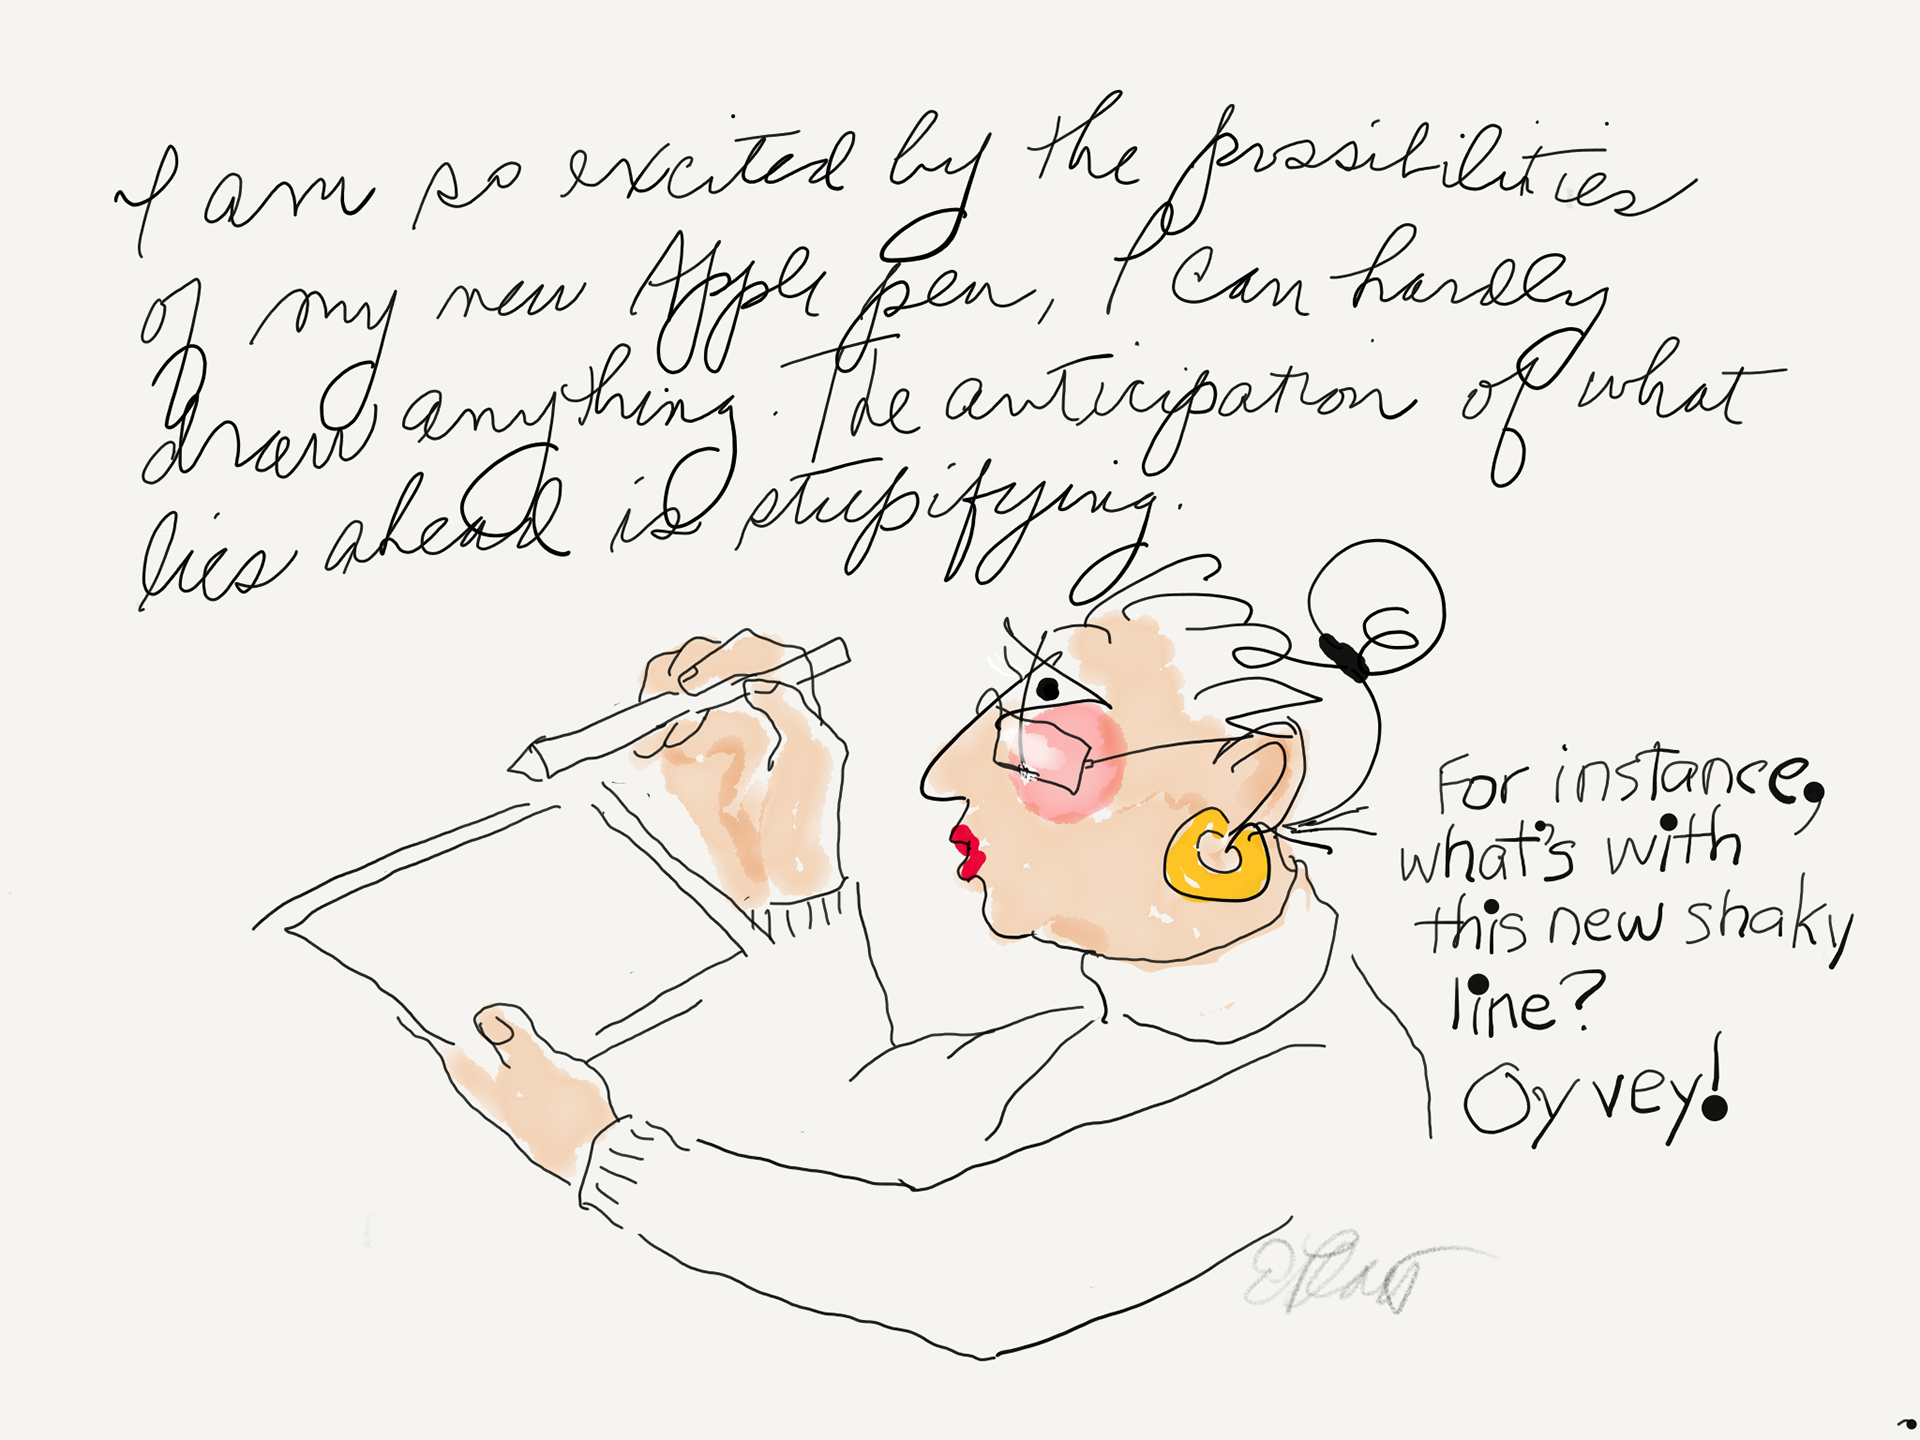 I am so excited by the possibilities
of my new Apple pen, I can hardly
draw anything. The anticipation of what
lies ahead is stupifying.
For instance,
what's with
this new shaky
line?
Oy vey!